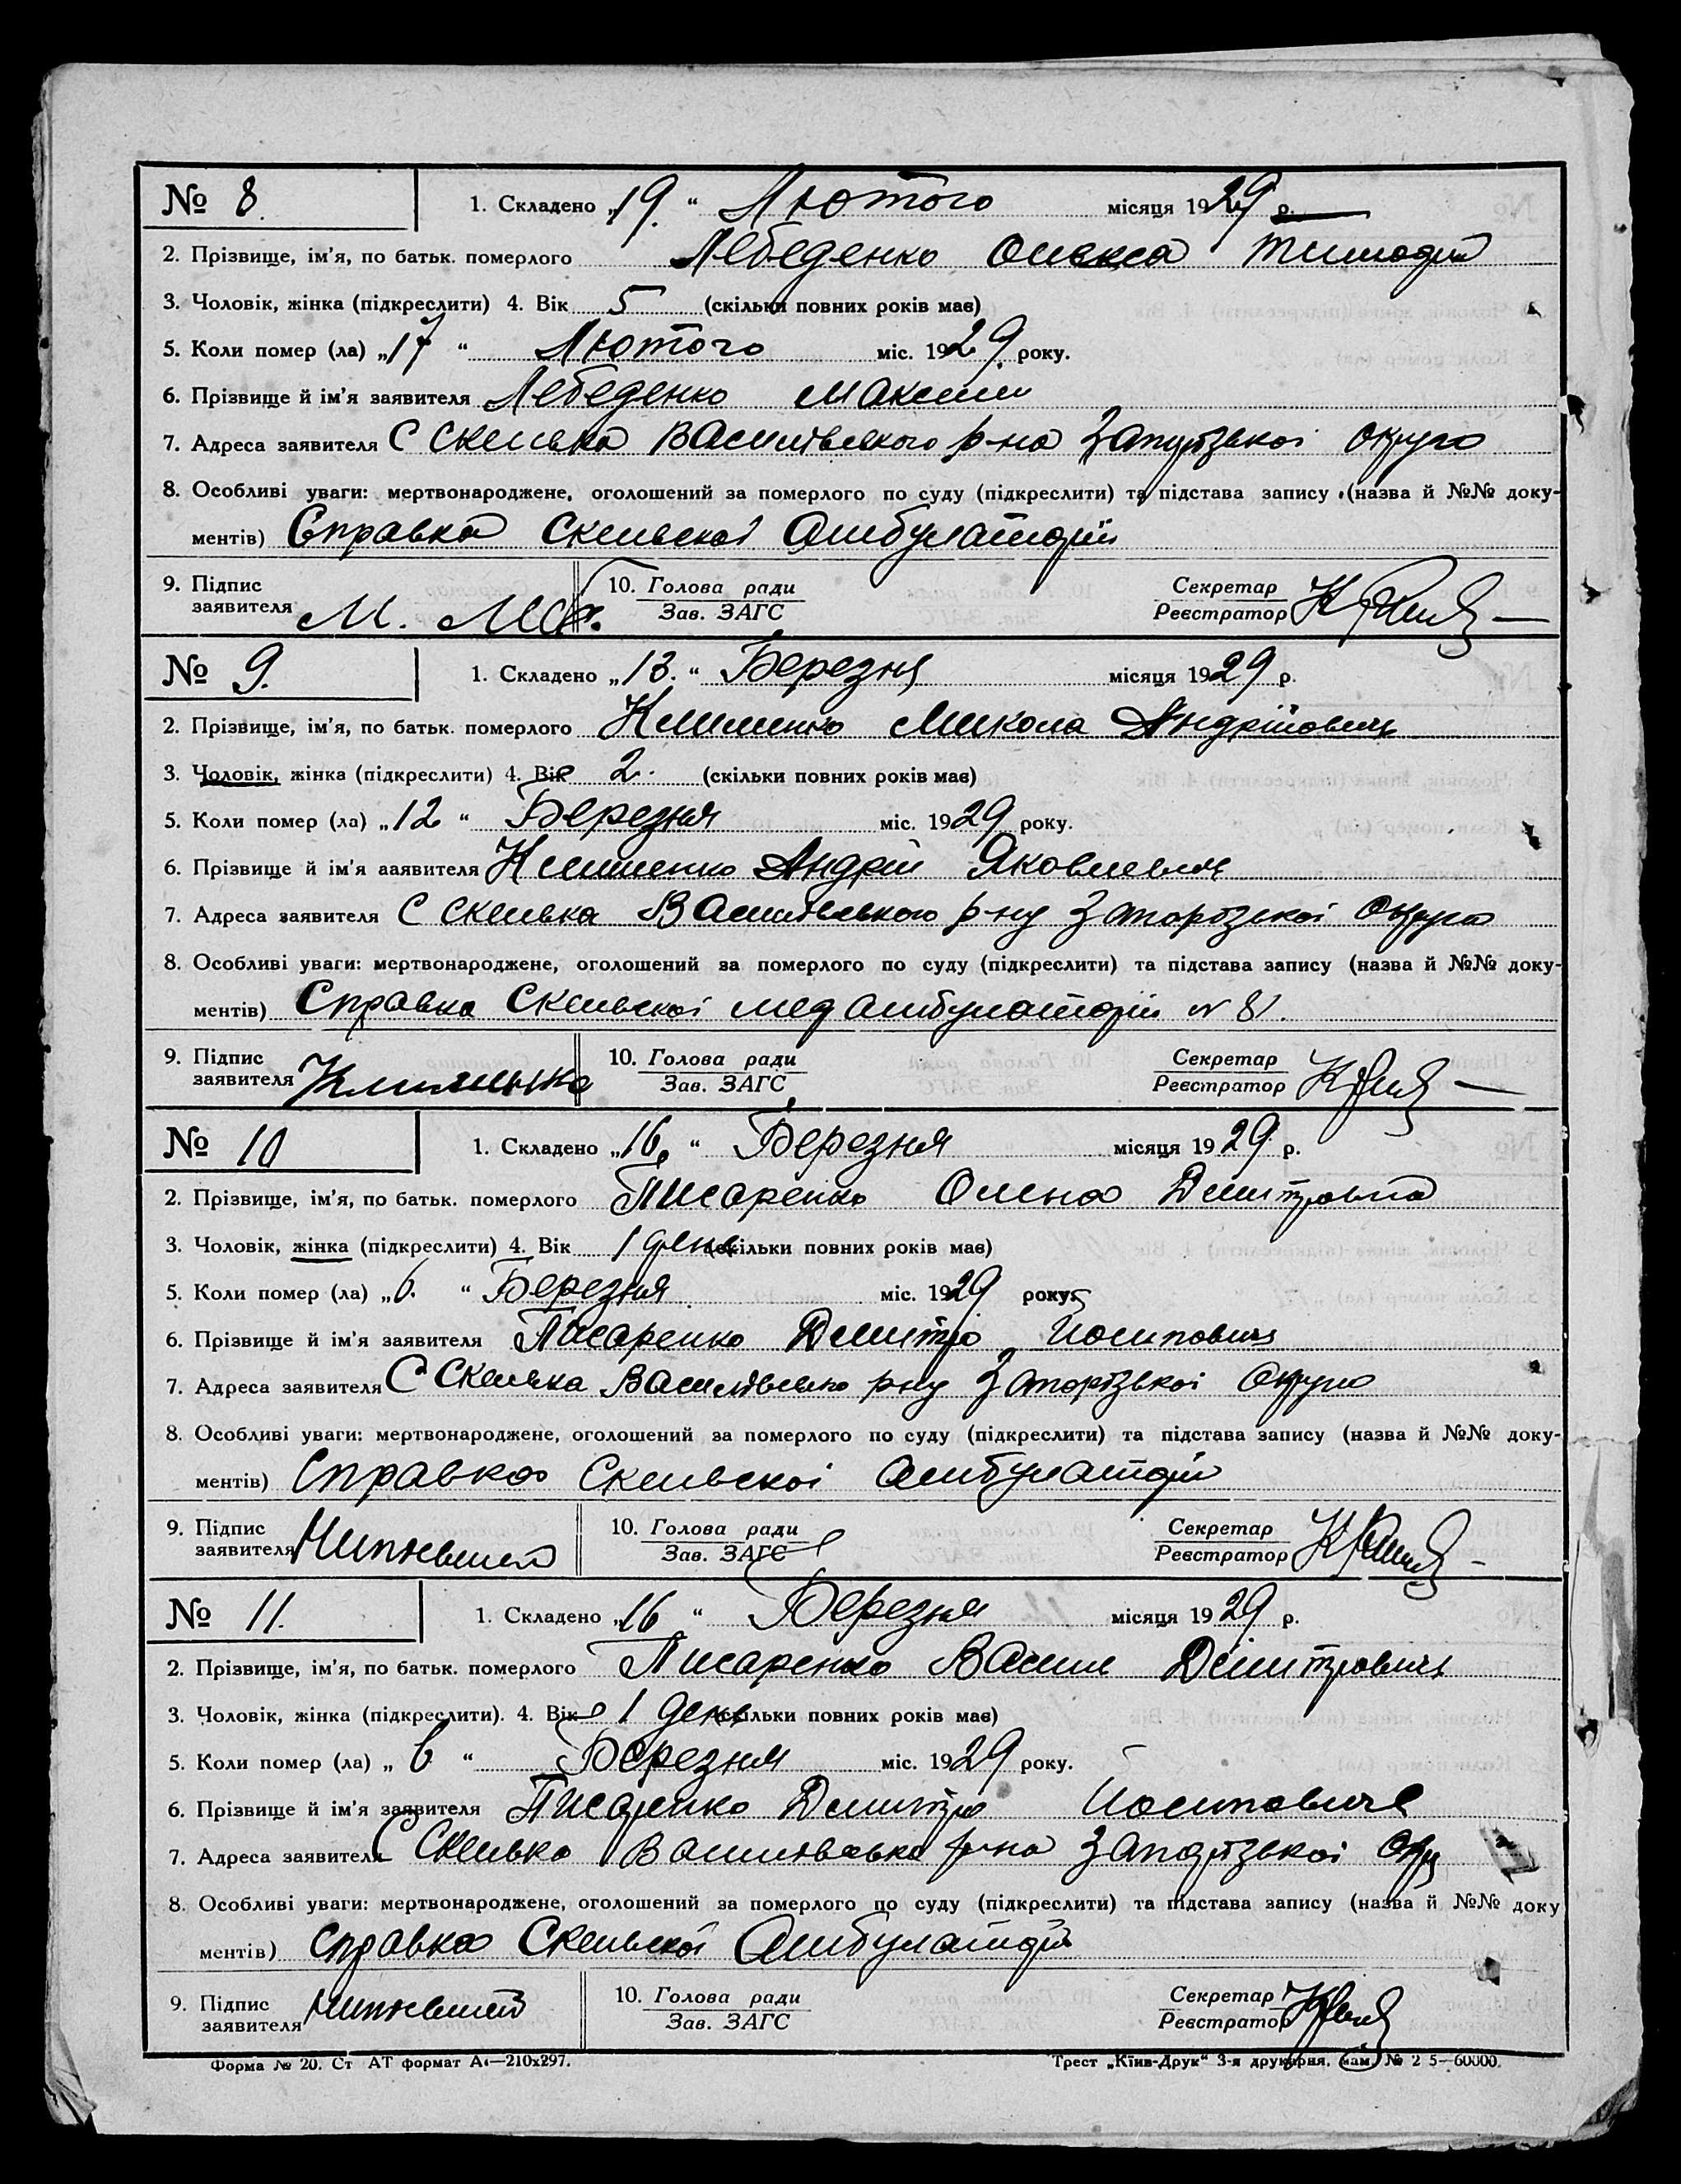 № 8. 1. Складено „19.“ Лютого місяця 1929 р.
2. Прізвище, ім'я, по батьк. померлого Лебеденко Олекса Тимофій
3. Чоловік, жінка (підкреслити) 4. Вік 5 (скільки повних років має)
5. Коли помер (ла) „17“ Лютого міс. 1929. року.
6. Прізвище й ім'я заявителя Лебеденко Максим
7. Адреса заявителя С Скелька Василівського р-на Запорізької округи
8. Особливі уваги: мертвонароджене, оголошений за померлого по суду (підкреслити) та підстава запису (назва й №№ доку-
ментів) Справка Скельської Амбулаторії
9. Підпис 10. Голова ради Секретар
заявителя Зав. ЗАГС Реєстратор
№ 9. 1. Складено „13.“ Березня місяця 1929 р.
2. Прізвище, ім'я, по батьк. померлого Клименко Микола Андрійович
3. Чоловік, жінка (підкреслити) 4. Вік 2. (скільки повних років має)
5. Коли помер (ла) „12“ Березня міс. 1929 року.
6. Прізвище й ім'я заявителя Клименко Андрій Яковлевич
7. Адреса заявителя С Скелька Василівського р-ну Запорізскої Округи
8. Особливі уваги: мертвонароджене, оголошений за померлого по суду (підкреслити) та підстава запису (назва й №№ доку-
ментів) Справка Скельскої мед амбулаторії № 81.
9. Підпис 10. Голова ради Секретар
заявителя Клименко Зав. ЗАГС Реєстратор
№ 10 1. Складено „16.“ Березня місяця 1929 р.
2. Прізвище, ім'я, по батьк. померлого Писаренко Олена Дмитровна
3. Чоловік, жінка (підкреслити) 4. Вік 1 день (скільки повних років має)
5. Коли помер (ла) „6.“ Березня міс. 1929 року.
6. Прізвище й ім'я заявителя Писаренко Дмитро Йосипович
7. Адреса заявителя С Скелька Василівсько рну Запорізької Округи
8. Особливі уваги: мертвонароджене, оголошений за померлого по суду (підкреслити) та підстава запису (назва й №№ доку-
ментів) Справка Скельскої амбулаторії
9. Підпис 10. Голова ради Секретар
заявителя Зав. ЗАГС Реєстратор
№ 11. 1. Складено „16“ Березня місяця 1929 р.
2. Прізвище, ім'я, по батьк. померлого Писаренко Васил Дмитрович
3. Чоловік, жінка (підкреслити). 4. Вік 1 день (скільки повних років має)
5. Коли помер (ла) „6“ Березня міс. 1929 року.
6. Прізвище й ім'я заявителя Писаренко Дмитро Йосипович
7. Адреса заявителя С Скелько Василівсько р-на Запорізької Окр
8. Особливі уваги: мертвонароджене, оголошений за померлого по суду (підкреслити) та підстава запису (назва й №№ доку
ментів) Справка Скельскої Амбулаторії
9. Підпис 10. Голова ради Секретар
заявителя Зав. ЗАГС Реєстратор
Форма № 20. Ст АТ формат А4—210x297. Трест „Київ-Друк“ 3-я друкарня, зам. № 2 5—60000.